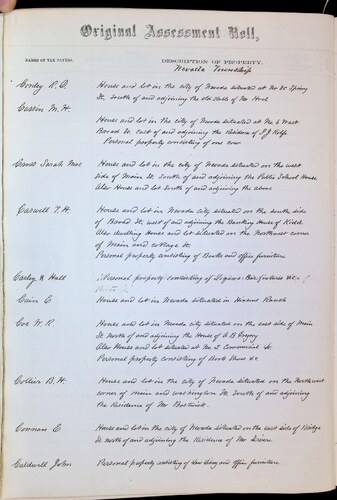 Original Assessment Roll,
NAMES OF TAX PAYERS. DESCRIPTION OF PROPERTY.
Nevada Township
Conley R. O. House and lot in the city of Nevada situated at No 85 Spring
St, South of and adjoining the old stable of Mr Hook
Caslin M. H.
House and lot in the city of Nevada situated at No 6 West
Broad St East of and adjoining the Residence of J J Rolfe
Personal property consisting of one cow
Cross Sarah Mrs House and lot in the city of Nevada situated on the west
side of Main St. South of and adjoining the Public School House
Also House and lot South of and adjoining the above
Caswell T. H. House and lot in Nevada city situated on the south side
of Broad St. west of and adjoining the Banking House of
Also dwelling House and lot situated on the Northwest corner
of Main and Cottage St.
Personal property consisting of Books and office furniture
Carley & Hall Personal property consisting of Liquors Bar fixtures &c
Cain C House and lot in Nevada situated in Ranch
Coe W. R. House and lot in Nevada city situated on the east side of Main
St north of and adjoining the House of A B Gregory
Also House and lot situated at No 2 Commercial St.
Personal property consisting of Work Shop &c
Collier B. H. House and lot in the city of Nevada situated on the Northwest
corner of main and washington St. South of and adjoining
the Residence of Mr Bostwick.
Connan C House and lot in the city of Nevada situated on the east side of
St. north of and adjoining the Residence of Mr
Caldwell John Personal property consisting of Law Library and office furniture